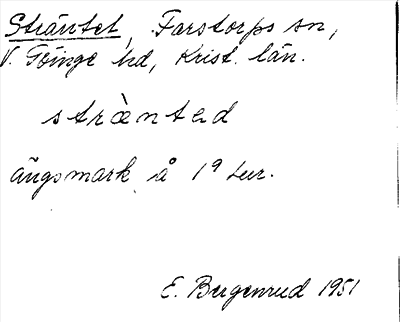 Sträntet, Farstorps sn,
V. Göinge hd, Krist. län.
strä̀nted
ängsmark å 19 tur.
E. Bergenrud 1951